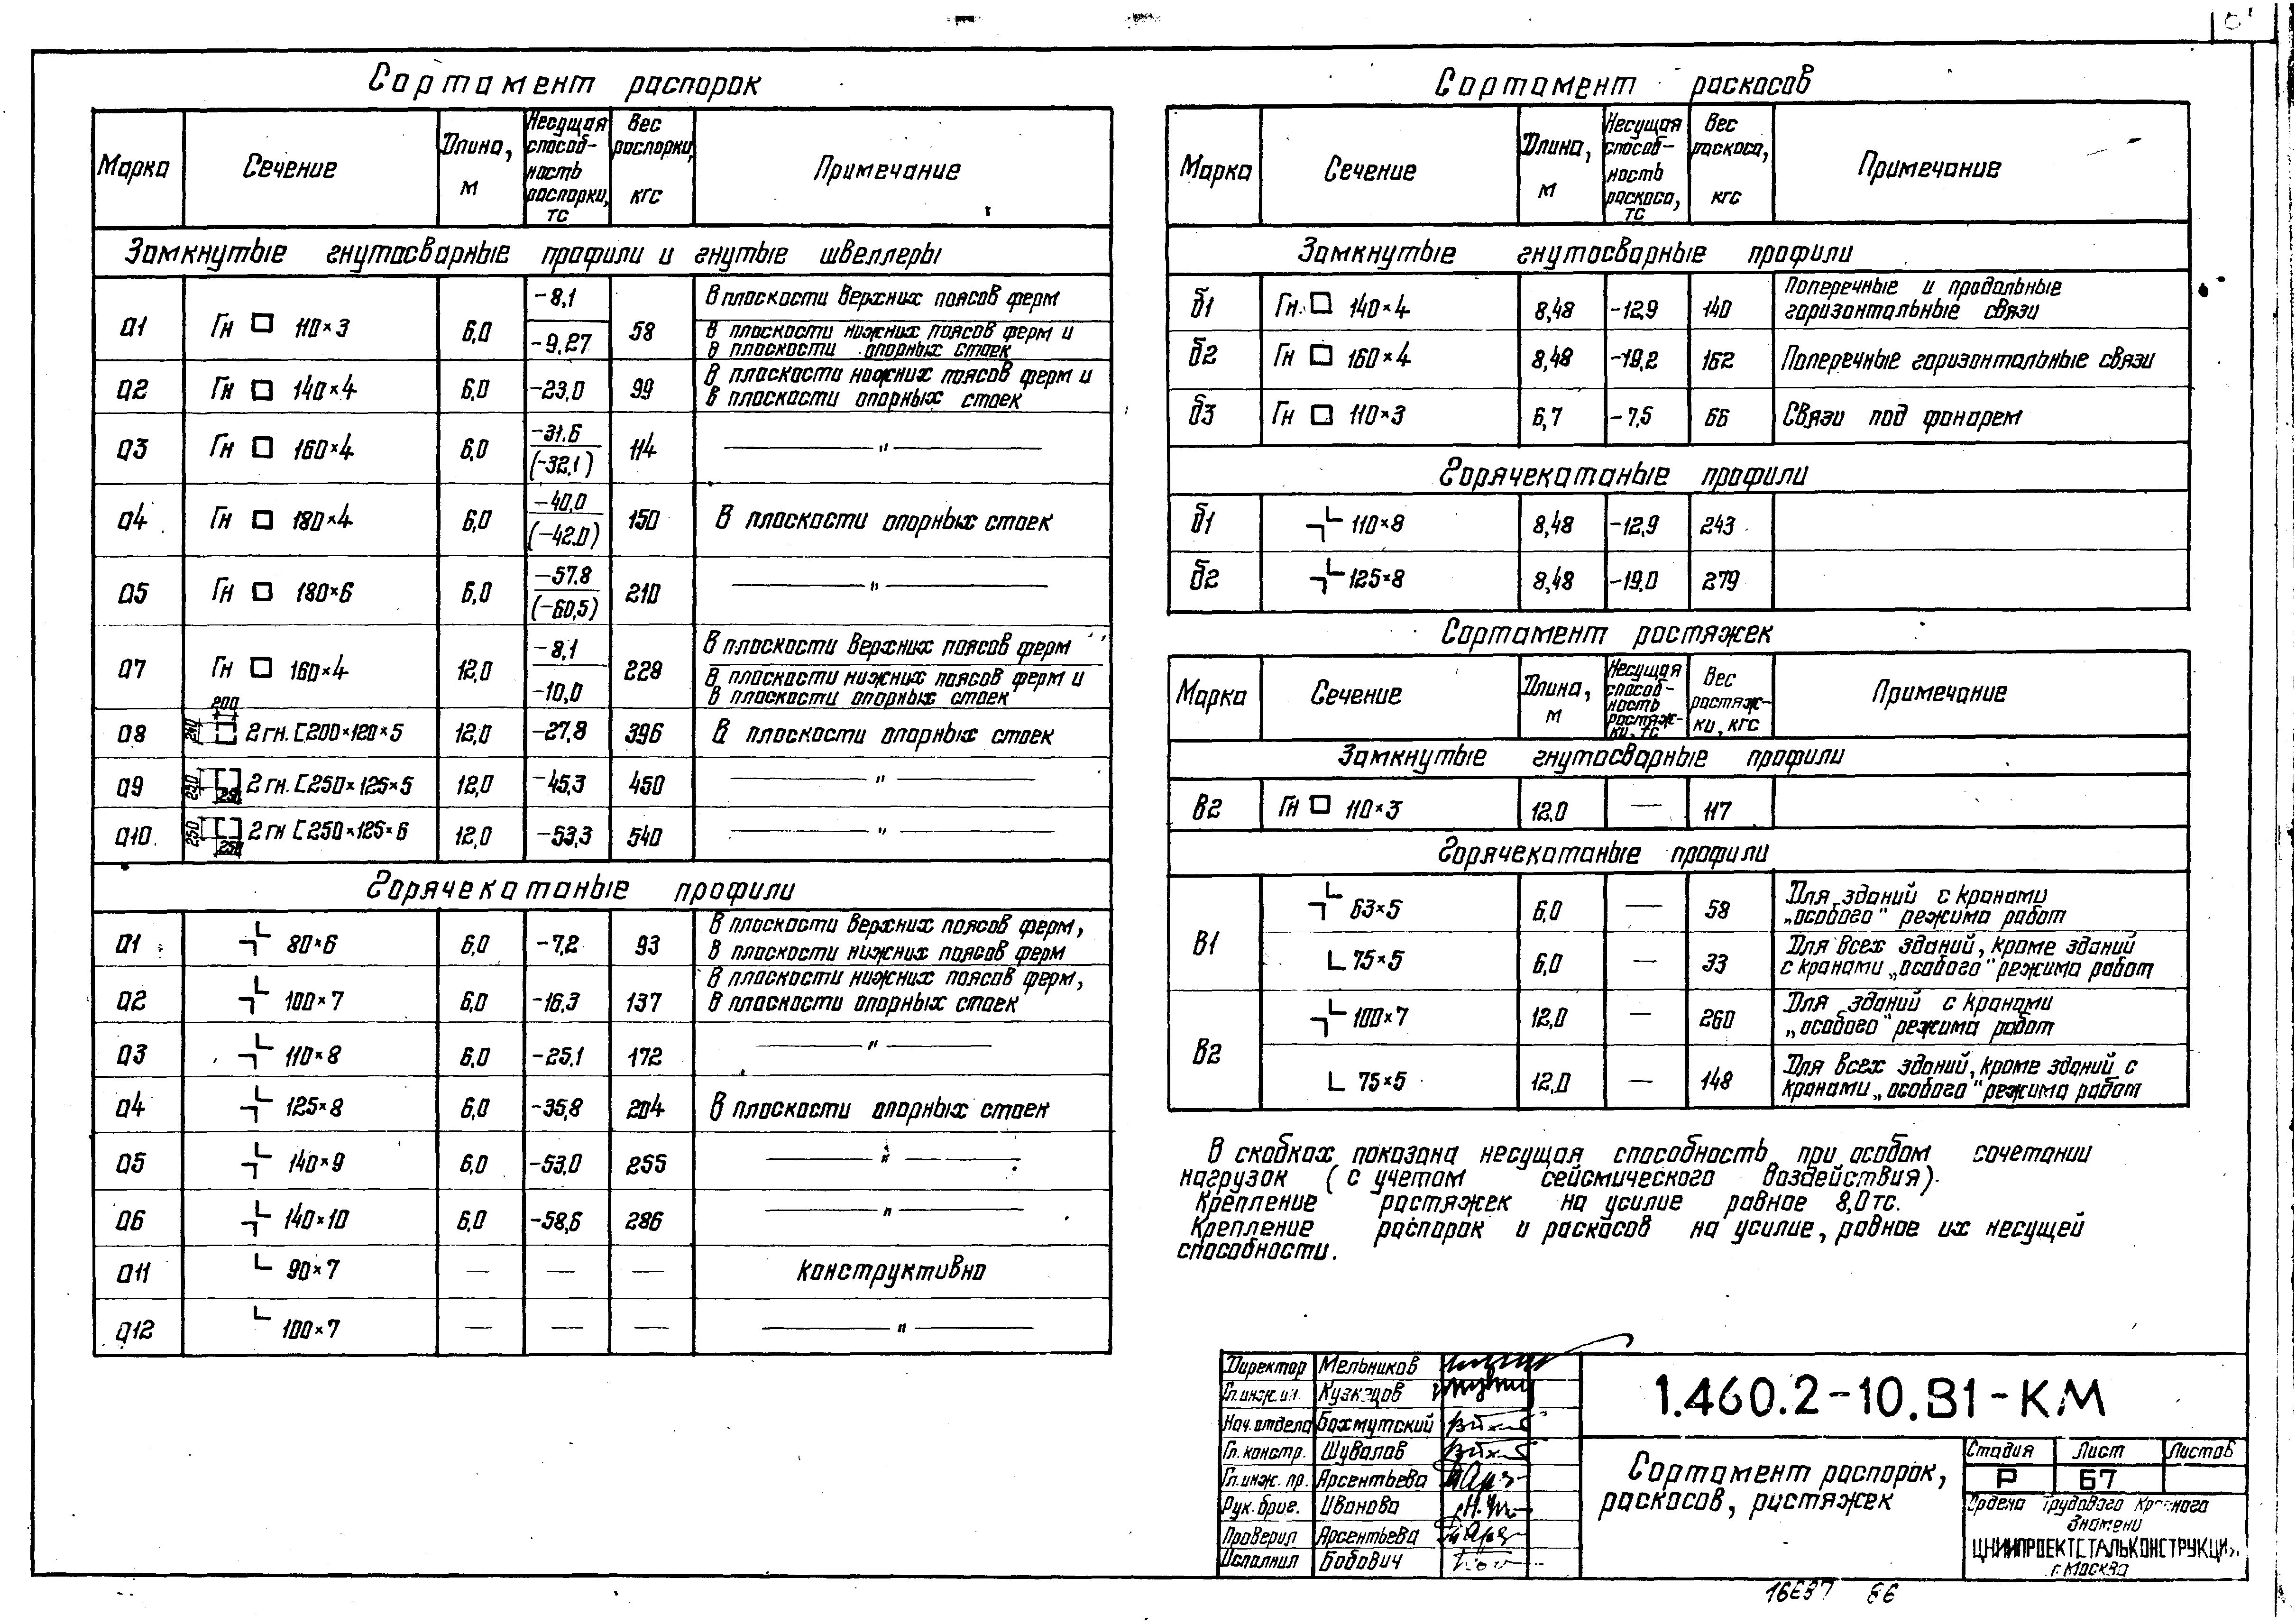 Сортамент распорок
Марка
Сечение
Длина, м
Несущая способ-
ность
распорки,
тс
Вес
распорки,
кгс
Примечание
Замкнутые гнутосварные профили и гнутые швеллеры
а1 Гн □ 110×3 6,0 -8,1 58 В плоскости верхних поясов ферм
-9,27 В плоскости нижних поясов ферм и
В плоскости опорных стоек
а2 Гн □ 140×4 6,0 -23,0 99 В плоскости нижних поясов ферм и
В плоскости опорных стоек
а3 Гн □ 160×4 6,0 -31.6 114 — " —
(-32,1)
а4 Гн □ 180×4 6,0 -40,0 150 В плоскости опорных стоек
(-42.0)
а5 Гн □ 180×6 6,0 -57.8 210 — " —
(-60,5)
а7 Гн □ 160×4 12,0 -8,1 228 В плоскости верхних поясов ферм
-10,0 В плоскости нижних поясов ферм и
В плоскости опорных стоек
200
240
а8 2 гн. [200×120×5 12,0 -27,8 396 В плоскости опорных стоек
250
а9 2 гн. [250×125×5 12,0 -45,3 450 — " —
250
а10. 2 гн [250×125×6 12,0 -53,3 540 — " —
250
250
Горячекатаные профили
а1 80×6 6,0 -7,2 93 В плоскости верхних поясов ферм,
В плоскости нижних поясов ферм
а2 100×7 6,0 -16,3 137 В плоскости нижних поясов ферм,
В плоскости опорных стоек
а3 110×8 6,0 -25,1 172 — " —
а4 125×8 6,0 -35,8 204 В плоскости опорных стоек
а5 140×9 6,0 -53,0 255 — " —
а6 140×10 6,0 -58,6 286 — " —
а11 90×7 — — — конструктивно
а12 100×7 — — — — " —
Сортамент раскосов
Марка
Сечение
Длина,
м
Несущая
способ-
ность
раскоса,
тс
Вес
раскоса,
кгс
Примечание
Замкнутые гнутосварные профили
б1 Гн. □ 140×4 8,48 -12,9 140 Поперечные и продольные
горизонтальные связи
б2 Гн □ 160×4 8,48 -19,2 162 Поперечные горизонтальные связи
б3 Гн □ 110×3 6,7 -7,5 66 Связи под фонарем
Горячекатаные профили
б1 110×8 8,48 -12,9 243
б2 125×8 8,48 -19,0 279
Сортамент растяжек
Марка
Сечение
Длина,
м
Несущая
способ-
ность
растяж-
ки, тс
Вес
растяж-
ки, кгс
Примечание
Замкнутые гнутосварные профили
В2 Гн □ 110×3 12,0 — 117
Горячекатаные профили
В1 63×5 6,0 — 58 Для зданий с кранами
„особого" режима работ
75×5 6,0 — 33 Для всех зданий, кроме зданий
с кранами „особого" режима работ
В2 100×7 12,0 — 260 Для зданий с кранами
„особого" режима работ
75×5 12,0 — 148 Для всех зданий, кроме зданий с
кранами „особого" режима работ
В скобках показана несущая способность при особом сочетании
нагрузок (с учетом сейсмического воздействия).
Крепление растяжек на усилие равное 8,0 тс.
Крепление распорок и раскосов на усилие, равное их несущей
способности.
Директор Мельников
Гл. инж. ин. Кузнецов
Нач. отдела Бахмутский
Гл. констр. Шувалов
Гл. инж. пр. Арсентьева
Рук. бриг. Иванова
Проверил Арсентьева
Исполнил Бобович
1.460.2-10.В1-КМ
Сортамент распорок,
раскосов, растяжек
Стадия Лист Листов
Р 67
Ордена Трудового Красного
Знамени
ЦНИИПРОЕКТСТАЛЬКОНСТРУКЦИ
г. Москва